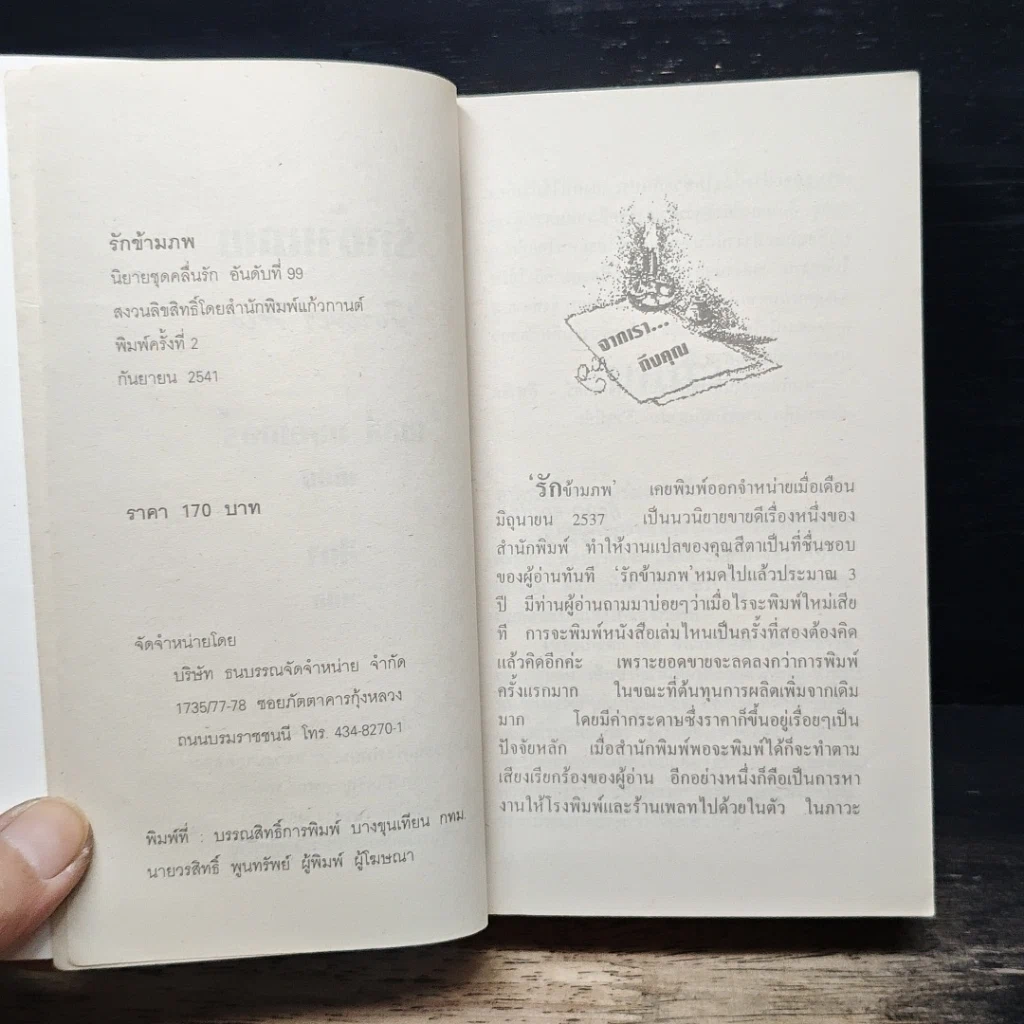 รักข้ามภพ
นิยายชุดคลื่นรัก อันดับที่ 99
สงวนลิขสิทธิ์โดยสำนักพิมพ์แก้วกานต์
พิมพ์ครั้งที่ 2
กันยายน 2541
ราคา 170 บาท
จัดจำหน่ายโดย
บริษัท ธนบรรณจัดจำหน่าย จำกัด
1735/77-78 ซอยภัตตาคารกุ้งหลวง
ถนนบรมราชชนนี โทร. 434-8270-1
พิมพ์ที่ : บรรณสิทธิ์การพิมพ์ บางขุนเทียน กทม.
นายวรสิทธิ์ พูนทรัพย์ ผู้พิมพ์ ผู้โฆษณา
จากเรา...
ถึงคุณ
'รักข้ามภพ' เคยพิมพ์ออกจำหน่ายเมื่อเดือน
มิถุนายน 2537 เป็นนวนิยายขายดีเรื่องหนึ่งของ
สำนักพิมพ์ ทำให้งานแปลของคุณสีตาเป็นที่ชื่นชอบ
ของผู้อ่านทันที 'รักข้ามภพ'หมดไปแล้วประมาณ 3
ปี มีท่านผู้อ่านถามมาบ่อยๆว่าเมื่อไรจะพิมพ์ใหม่เสีย
ที การจะพิมพ์หนังสือเล่มไหนเป็นครั้งที่สองต้องคิด
แล้วคิดอีกค่ะ เพราะยอดขายจะลดลงกว่าการพิมพ์
ครั้งแรกมาก ในขณะที่ต้นทุนการผลิตเพิ่มจากเดิม
มาก โดยมีค่ากระดาษซึ่งราคาก็ขึ้นอยู่เรื่อยๆเป็น
ปัจจัยหลัก เมื่อสำนักพิมพ์พอจะพิมพ์ได้ก็จะทำตาม
เสียงเรียกร้องของผู้อ่าน อีกอย่างหนึ่งก็คือเป็นการหา
งานให้โรงพิมพ์และร้านเพลทไปด้วยในตัว ในภาวะ